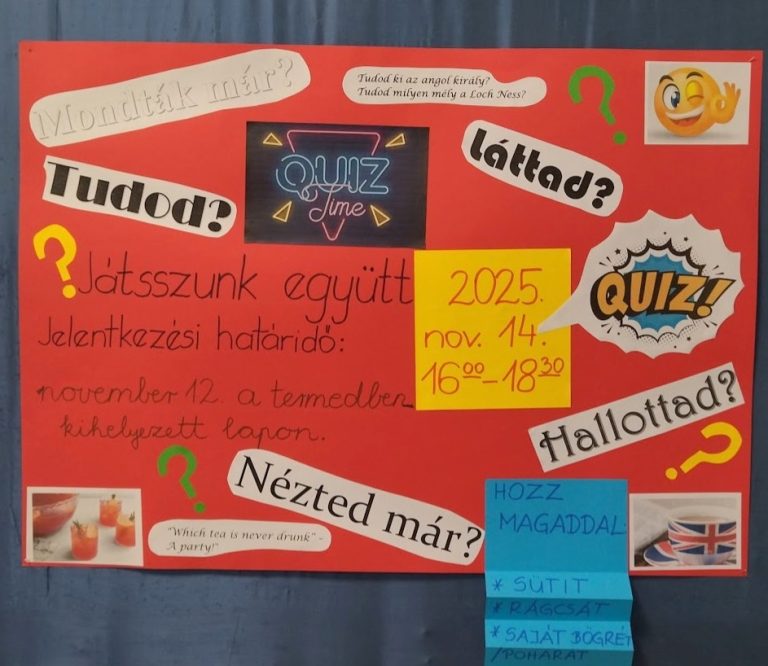 Mondták már?
Tudod ki az angol király?
Tudod milyen mély a Loch Ness?
Tudod?
QUIZ
Time
Láttad?
Játsszunk együtt
Jelentkezési határidő:
november 12. a termedben
kihelyezett lapon.
2025.
nov. 14.
16⁰⁰-18³⁰
QUIZ!
Hallottad?
Nézted már?
"Which tea is never drunk" -
A party!"
HOZZ
MAGADDAL:
* SÜTIT
* RÁGCSÁT
* SAJÁT BÖGRÉT
/POHARAT